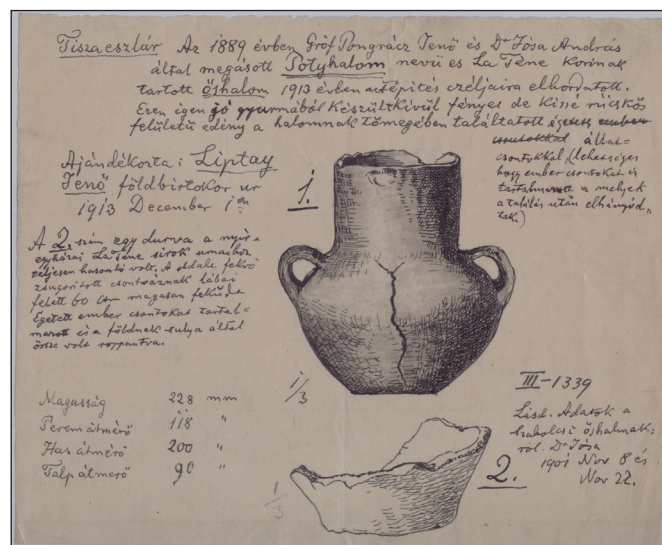 Tiszaeszlár Az 1889 évben Gróf Pongrácz Jenő és Dr Jósa András
által megásott Pótyhalom nevü és La Tène korinak
tartott őshalom 1913 évben utépités czéljaira elhordatott.
Ezen igen jó gyurmából készült kivül fényes de kissé rücskös
felületü edény a halomnak tömegében találtatott égetett ember
csontokkal állat=
csontokkal, (lehetséges
hogy ember csontokat is
tartalmazott a melyek
a találás után elhányód„
tak.)
Ajándékozta: Liptay
Jenő földbirtokos ur
1913 December 1én
1.
A 2. szám egy durva a nyir=
egyházi La Tène sirok urnáihoz
teljesen hasonló volt. A oldalt fekvő
zsugoritott csontváznak lábai
felett 60 ctm magasan feküdt
Égetett ember csontokat tartal=
mazott és a földnek sulya által
össze volt roppantva.
1/3
Magasság 228 mm
Perem átmérő 118 "
Has átmérő 200 "
Talp átmérő 90 "
III-1339
Lásd. Adatok a
szabolcsi őshalmak=
ról. Dr Jósa
1901 Nov 8 és
Nov 22.
1/3
2.